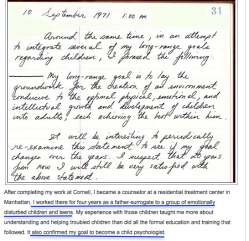 10 September 1971 1:00 AM
31
Around the same time, in an attempt
to integrate several of my long-range goals
regarding children, I formed the following:
My long-range goal is to lay the
groundwork for the creation of an environment
conducive to the optimal physical, emotional, and
intellectual growth and development of children
into adults, each achieving the best within him.
It will be interesting to periodically
re-examine this statement to see if my goal
changes over the years. I suspect that 20 years
from now I will still be very satisfied with
the above statement.
After completing my work at Cornell, I became a counselor at a residential treatment center in
Manhattan. I worked there for four years as a father-surrogate to a group of emotionally
disturbed children and teens. My experience with those children taught me more about
understanding and helping troubled children than did all the formal education and training that
followed. It also confirmed my goal to become a child psychologist.